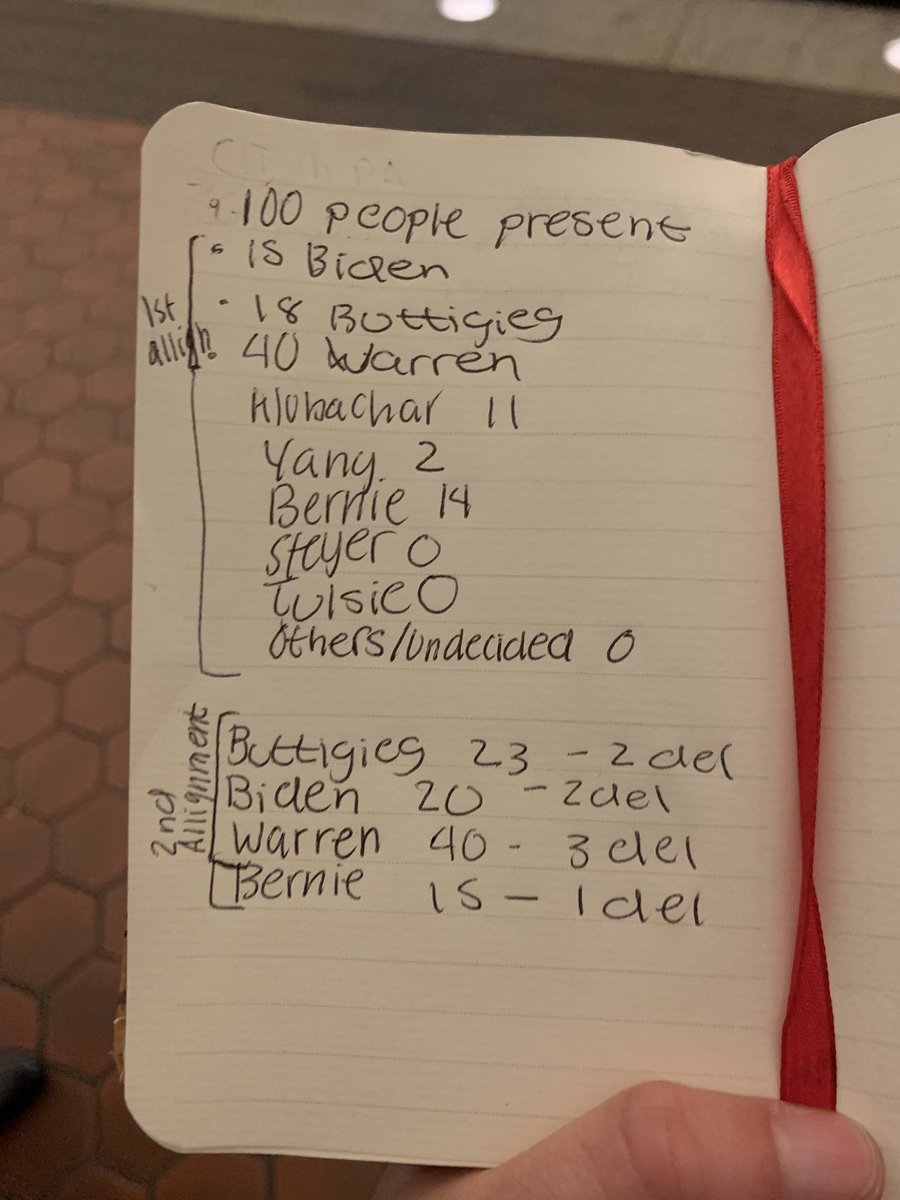 100 people present
15 Biden
18 Buttigieg
1st allign.
40 Warren
Klobachar 11
Yang. 2
Bernie 14
Steyer 0
Tulsie 0
Others/Undecided 0
2nd Allignment
Buttigieg 23 - 2 del
Biden 20 - 2 del
Warren 40 - 3 del
Bernie 15 - 1 del